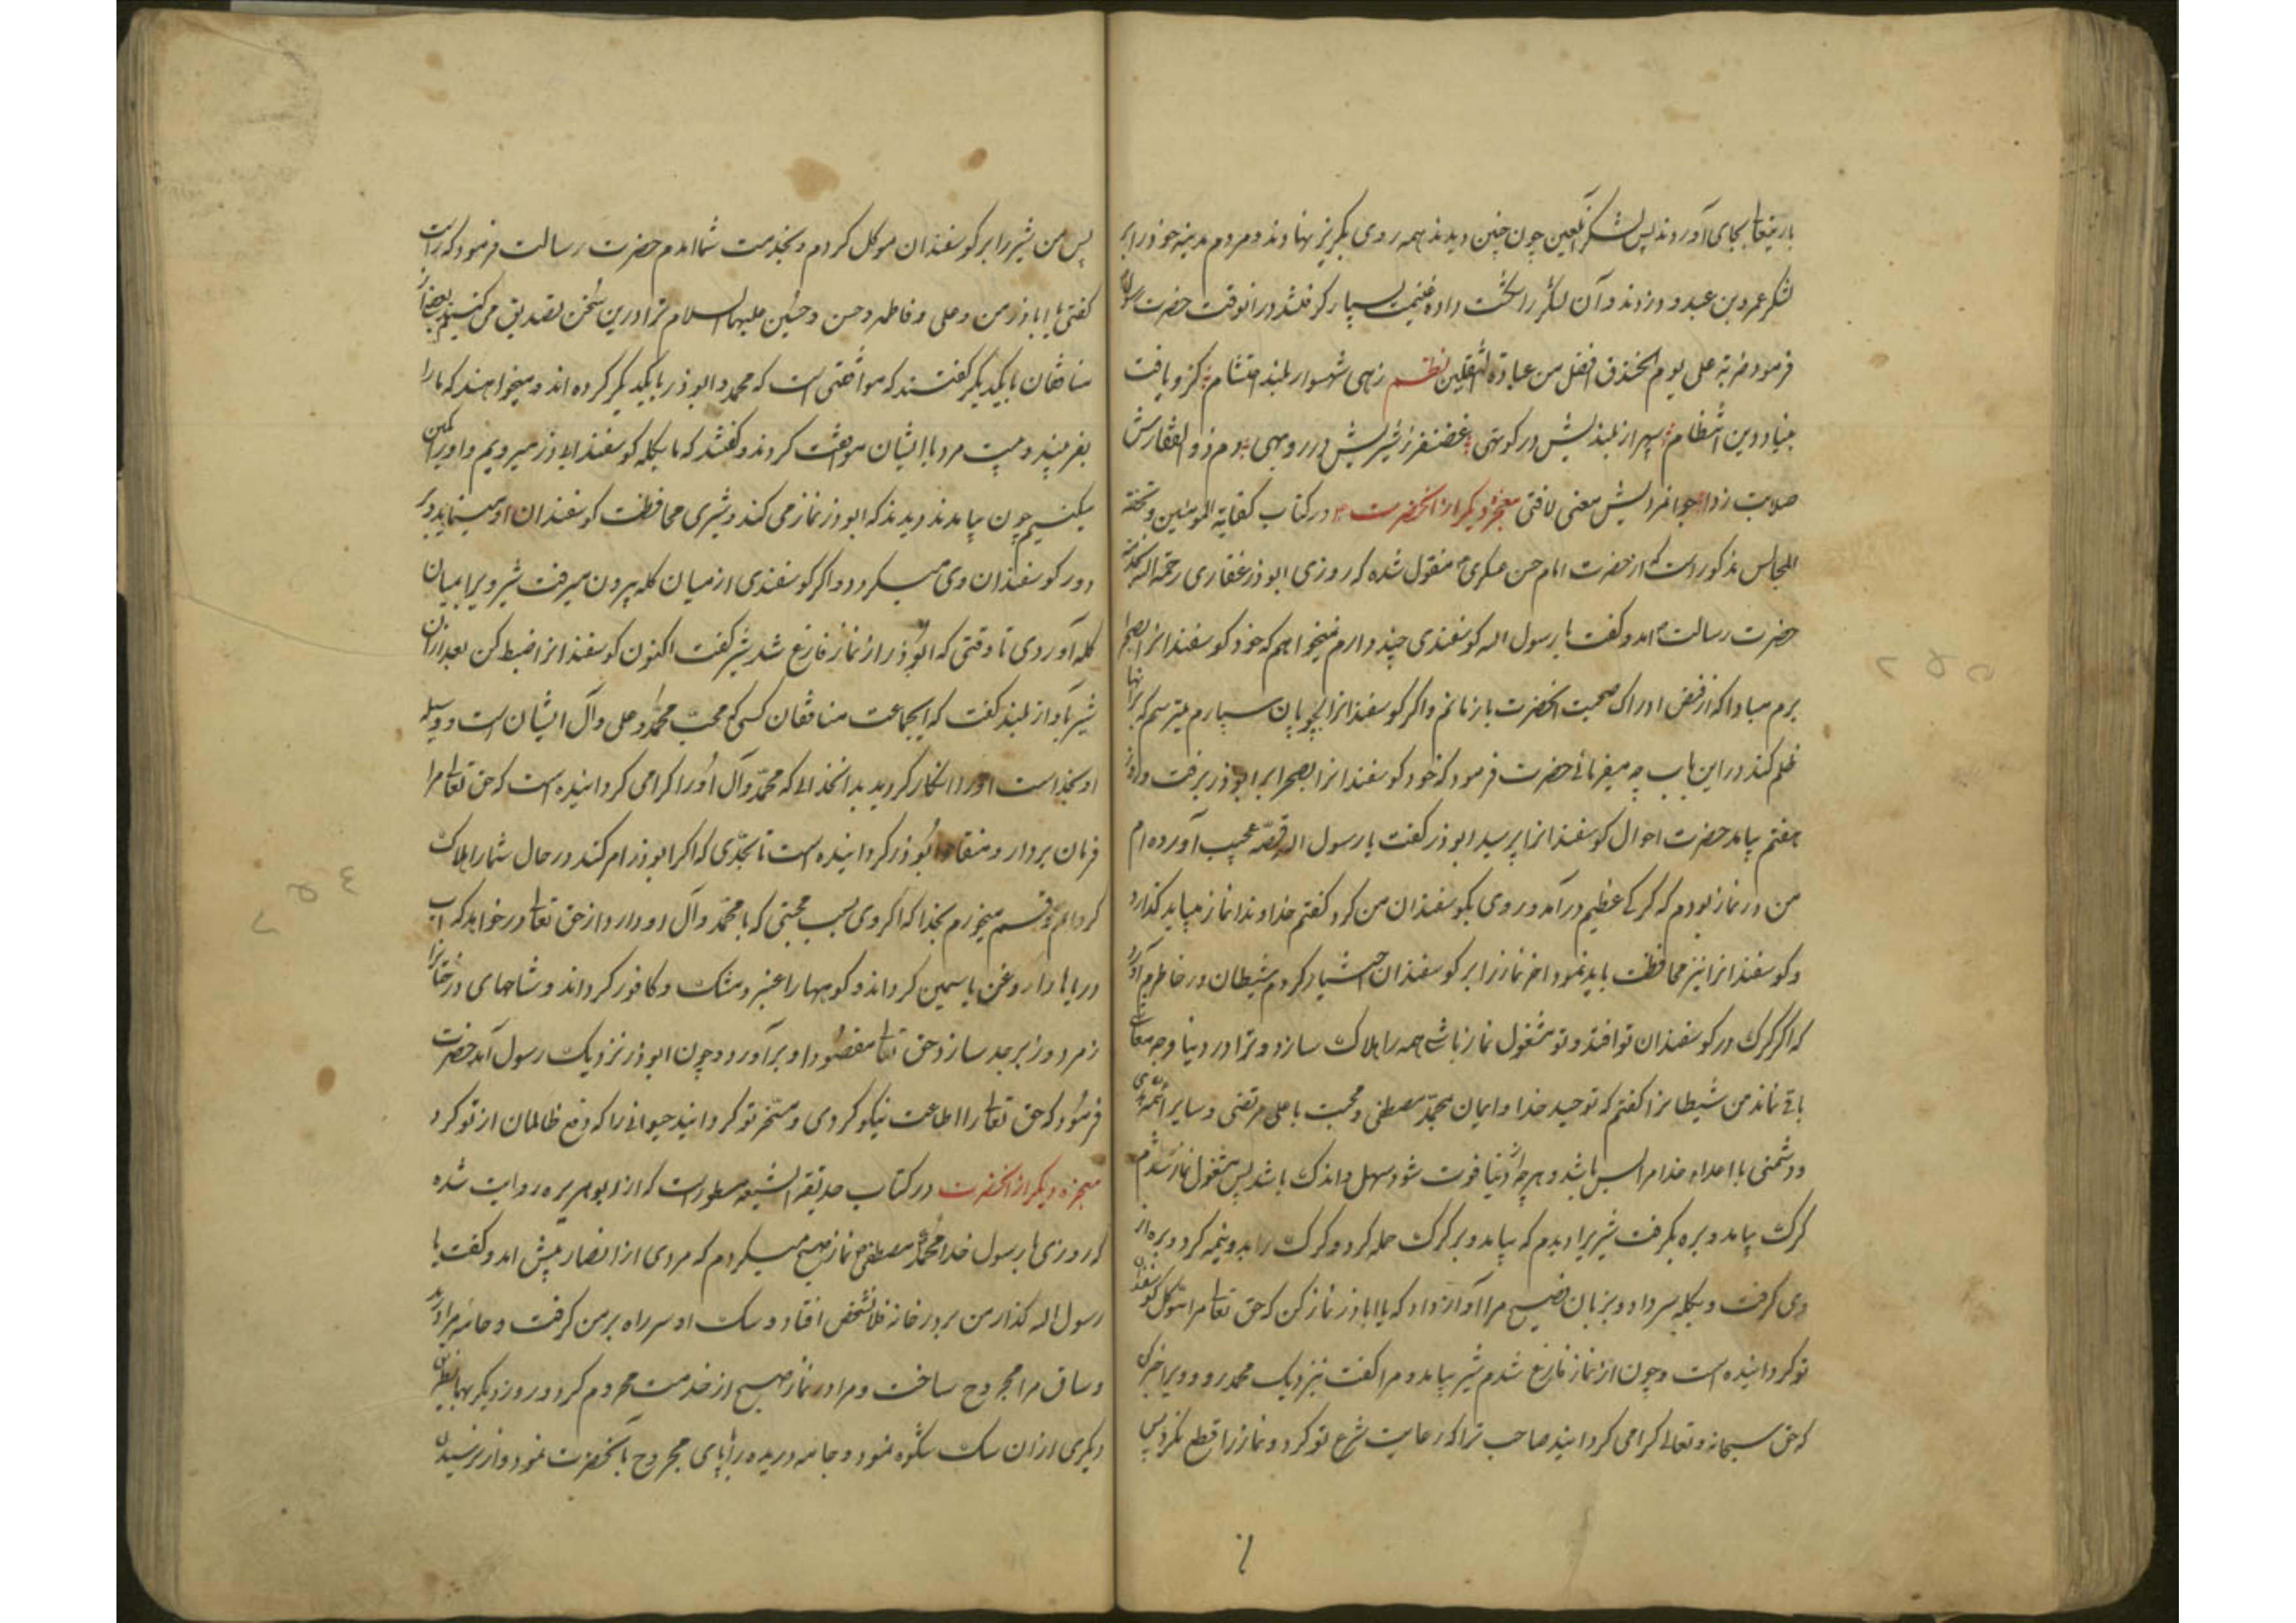 باریتعالی بجای آوردند پس لشکر آن لعین چون چنین دیدند همه روی بگریز نهادند و مردم مدینه خود را بر
لشکر عمرو بن عبدود زدند و آن لشکر را شکست داده غنیمت بسیار گرفتند در آنوقت حضرت رسول
فرمود ضربة علی یوم الخندق افضل من عبادة الثقلین نظم زهی شهسوار بلند احتشام کزو یافت
بنیاد دین انتظام سپهر از بلندیش در کوتهی غضنفر ز شیریش در روبهی دم ذو الفقارش
صلابت زدا جوانمردیش معنی لافتی معجزه دیگر از آنحضرت در کتاب کفایة المومنین و تحفة
المجالس مذکور است که از حضرت امام حسن عسکری منقول شده که روزی ابوذر غفاری رحمة الله بخدمت
حضرت رسالت آمد و گفت یا رسول الله کوسفندی چند دارم نمیخواهم که خود کوسفندانرا بصحرا
برم مبادا که از فیض ادراک صحبت آنحضرت باز مانم و اکر کوسفندانرا بچوپان سپارم میترسم که بر آنها
ظلم کند در این باب چه میفرمائی حضرت فرمود که خود کوسفندانرا بصحرا بر ابوذر برفت و روز
هفتم بیامد حضرت احوال کوسفندانرا پرسید ابوذر گفت یا رسول الله قصه عجیب آورده ام
من در نماز بودم که کرکی عظیم درآمد و روی بکوسفندان من کرد کفتم خداوندا نماز میباید کذارد
و کوسفندانرا نیز محافظت باید نمود آخر نماز را بر کوسفندان اختیار کردم شیطان در خاطرم آورد
که اکر کرک در کوسفندان تو افتد و تو مشغول نماز باشی همه را هلاک سازد و ترا در دنیا وجه معاش
باقی نماند من شیطانرا کفتم که توحید خدا و ایمان بمحمد مصطفی و محبت با علی مرتضی و سایر ائمه هدی
و دشمنی با اعداء خدا مرا بس باشد و هرچه از دنیا فوت شود سهل و اندک باشد پس مشغول نماز شدم
کرک بیامد و بره بکرفت شیریرا دیدم که بیامد و بر کرک حمله کرد و کرک را بدو نیمه کرد و بره از
وی کرفت و بکله سر داد و بزبان فصیح مرا آواز داد که یا اباذر نماز کن که حق تعالی مرا موکل کوسفندان
تو کردانیده است و چون از نماز فارغ شدم شیر بیامد و مرا کفت بنزدیک محمد رو و ویرا خبر کن
که حق سبحانه و تعالی کرامی کردانید صاحب ترا که رعایت شرع تو کرد و نماز را قطع نکرد پس
پس من شیر را بر کوسفندان موکل کردم و بخدمت شما آمدم حضرت رسالت فرمود که راست
کفتی یا اباذر من و علی و فاطمه و حسن و حسین علیهم السلام ترا در این سخن تصدیق می کنیم بعضی از
منافقان با یکدیگر گفتند که موافقتی است که محمد و ابوذر با یکدیگر کرده اند و میخواهند که ما را
بفریبند و بیست مرد با ایشان موافقت کردند و کفتند که ما بکله کوسفند ابوذر میرویم و او را کمین
میکنیم چون بیامدند دیدند که ابوذر نماز می کند و شیری محافظت کوسفندان او مینماید و بر
دور کوسفندان وی میکردد و اکر کوسفندی از میان کله بیرون میرفت شیر ویرا بمیان
کله آوردی تا وقتی که ابوذر از نماز فارغ شد شیر کفت اکنون کوسفندانرا ضبط کن بعد از آن
شیر بآواز بلند کفت که ایجماعت منافقان کسی که محب محمد و علی و آل ایشان است و وسیله
او بخداست او را انکار کردید بدانخدائی که محمد و آل او را کرامی کردانیده است که حق تعالی مرا
فرمان بردار و منقاد ابوذر کردانیده است تا بحدی که اکر ابوذر امر کند در حال شما را هلاک
کردانم و قسم میخورم بخدا که اکر وی بسبب محبتی که با محمد و آل او دارد از حق تعالی درخواهد که آب
دریاها را روغن یاسمین کرداند و کوهها را عنبر و مشک و کافور کرداند و شاخهای درختانرا
زمرد و زبرجد سازد حق تعالی مقصود او برآورد و چون ابوذر نزدیک رسول آمد حضرت
فرمود که حق تعالی را اطاعت نیکو کردی و مسخر تو کردانید حیوانی را که دفع ظالمان از تو کرد
معجزه دیگر از آنحضرت در کتاب حدیقة الشیعه مسطور است که از ابو هریره روایت شده
که روزی با رسول خدا محمد مصطفی نماز صبح میکردم که مردی از انصار پیش آمد و کفت یا
رسول الله کذار من بر در خانه فلانشخص افتاد و سک او سر راه بر من کرفت و جامه مرا درید
و ساق مرا مجروح ساخت و مرا در نماز صبح از خدمت محروم کرد و روز دیکر بهمانطریق
دیکری از آن سک شکوه نمود و جامه دریده را با پای مجروح بآنحضرت نمود